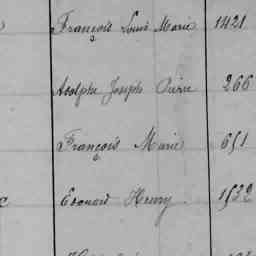 François Louis Marie 1421
Adolphe Joseph Pierre 266
François Marie 651
Edouard Henry 1522